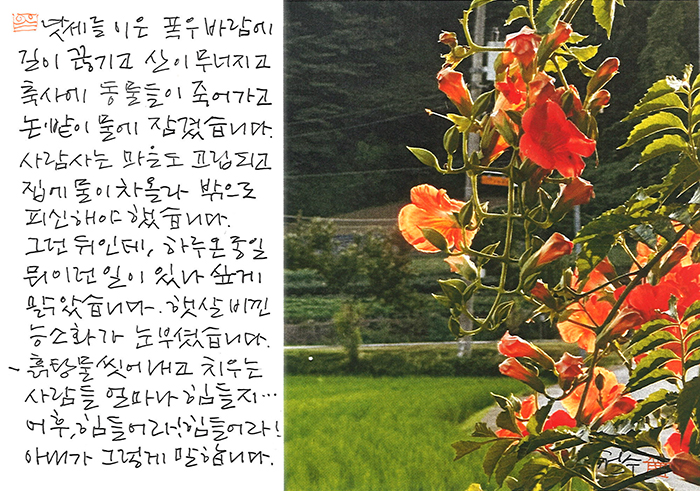 몇 세를 이은 폭우바람에
길이 끊기고 산이 무너지고
축사에 동물들이 죽어가고
논밭이 물에 잠겼습니다.
사람사는 마을도 고립되고
집에 물이 차올라 밖으로
피신해야 했습니다.
그런 뒤인데, 하루온종일
뭐 이런 일이 있나 싶게
맑았습니다. 햇살 비낀
능소화가 눈부셨습니다.
- 흙탕물 씻어내고 치우는
사람들 얼마나 힘들지...
어후, 힘들어라! 힘들어라!
아내가 그렇게 말합니다.
철수